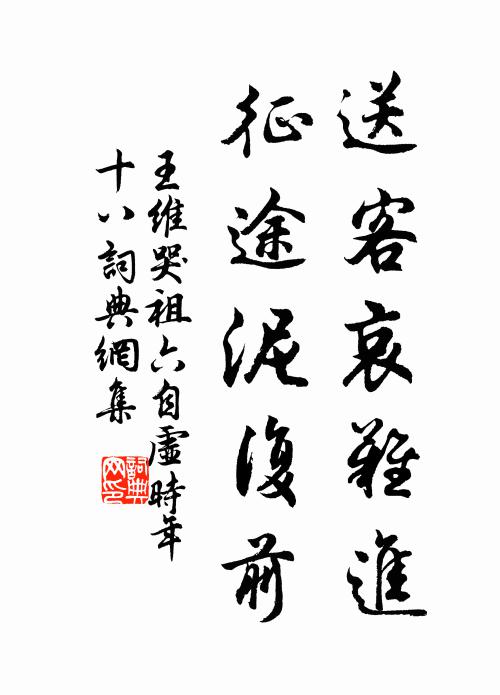 送客哀難進
征途泥復前
王維哭祖六自虛時年
十八詞典網集
詞典
网印